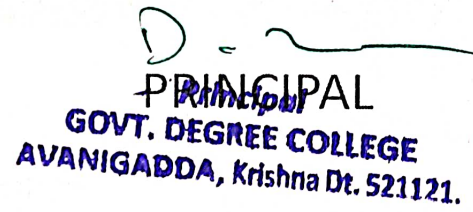 PRINCIPAL
Principal
GOVT. DEGREE COLLEGE
AVANIGADDA, Krishna Dt. 521121.